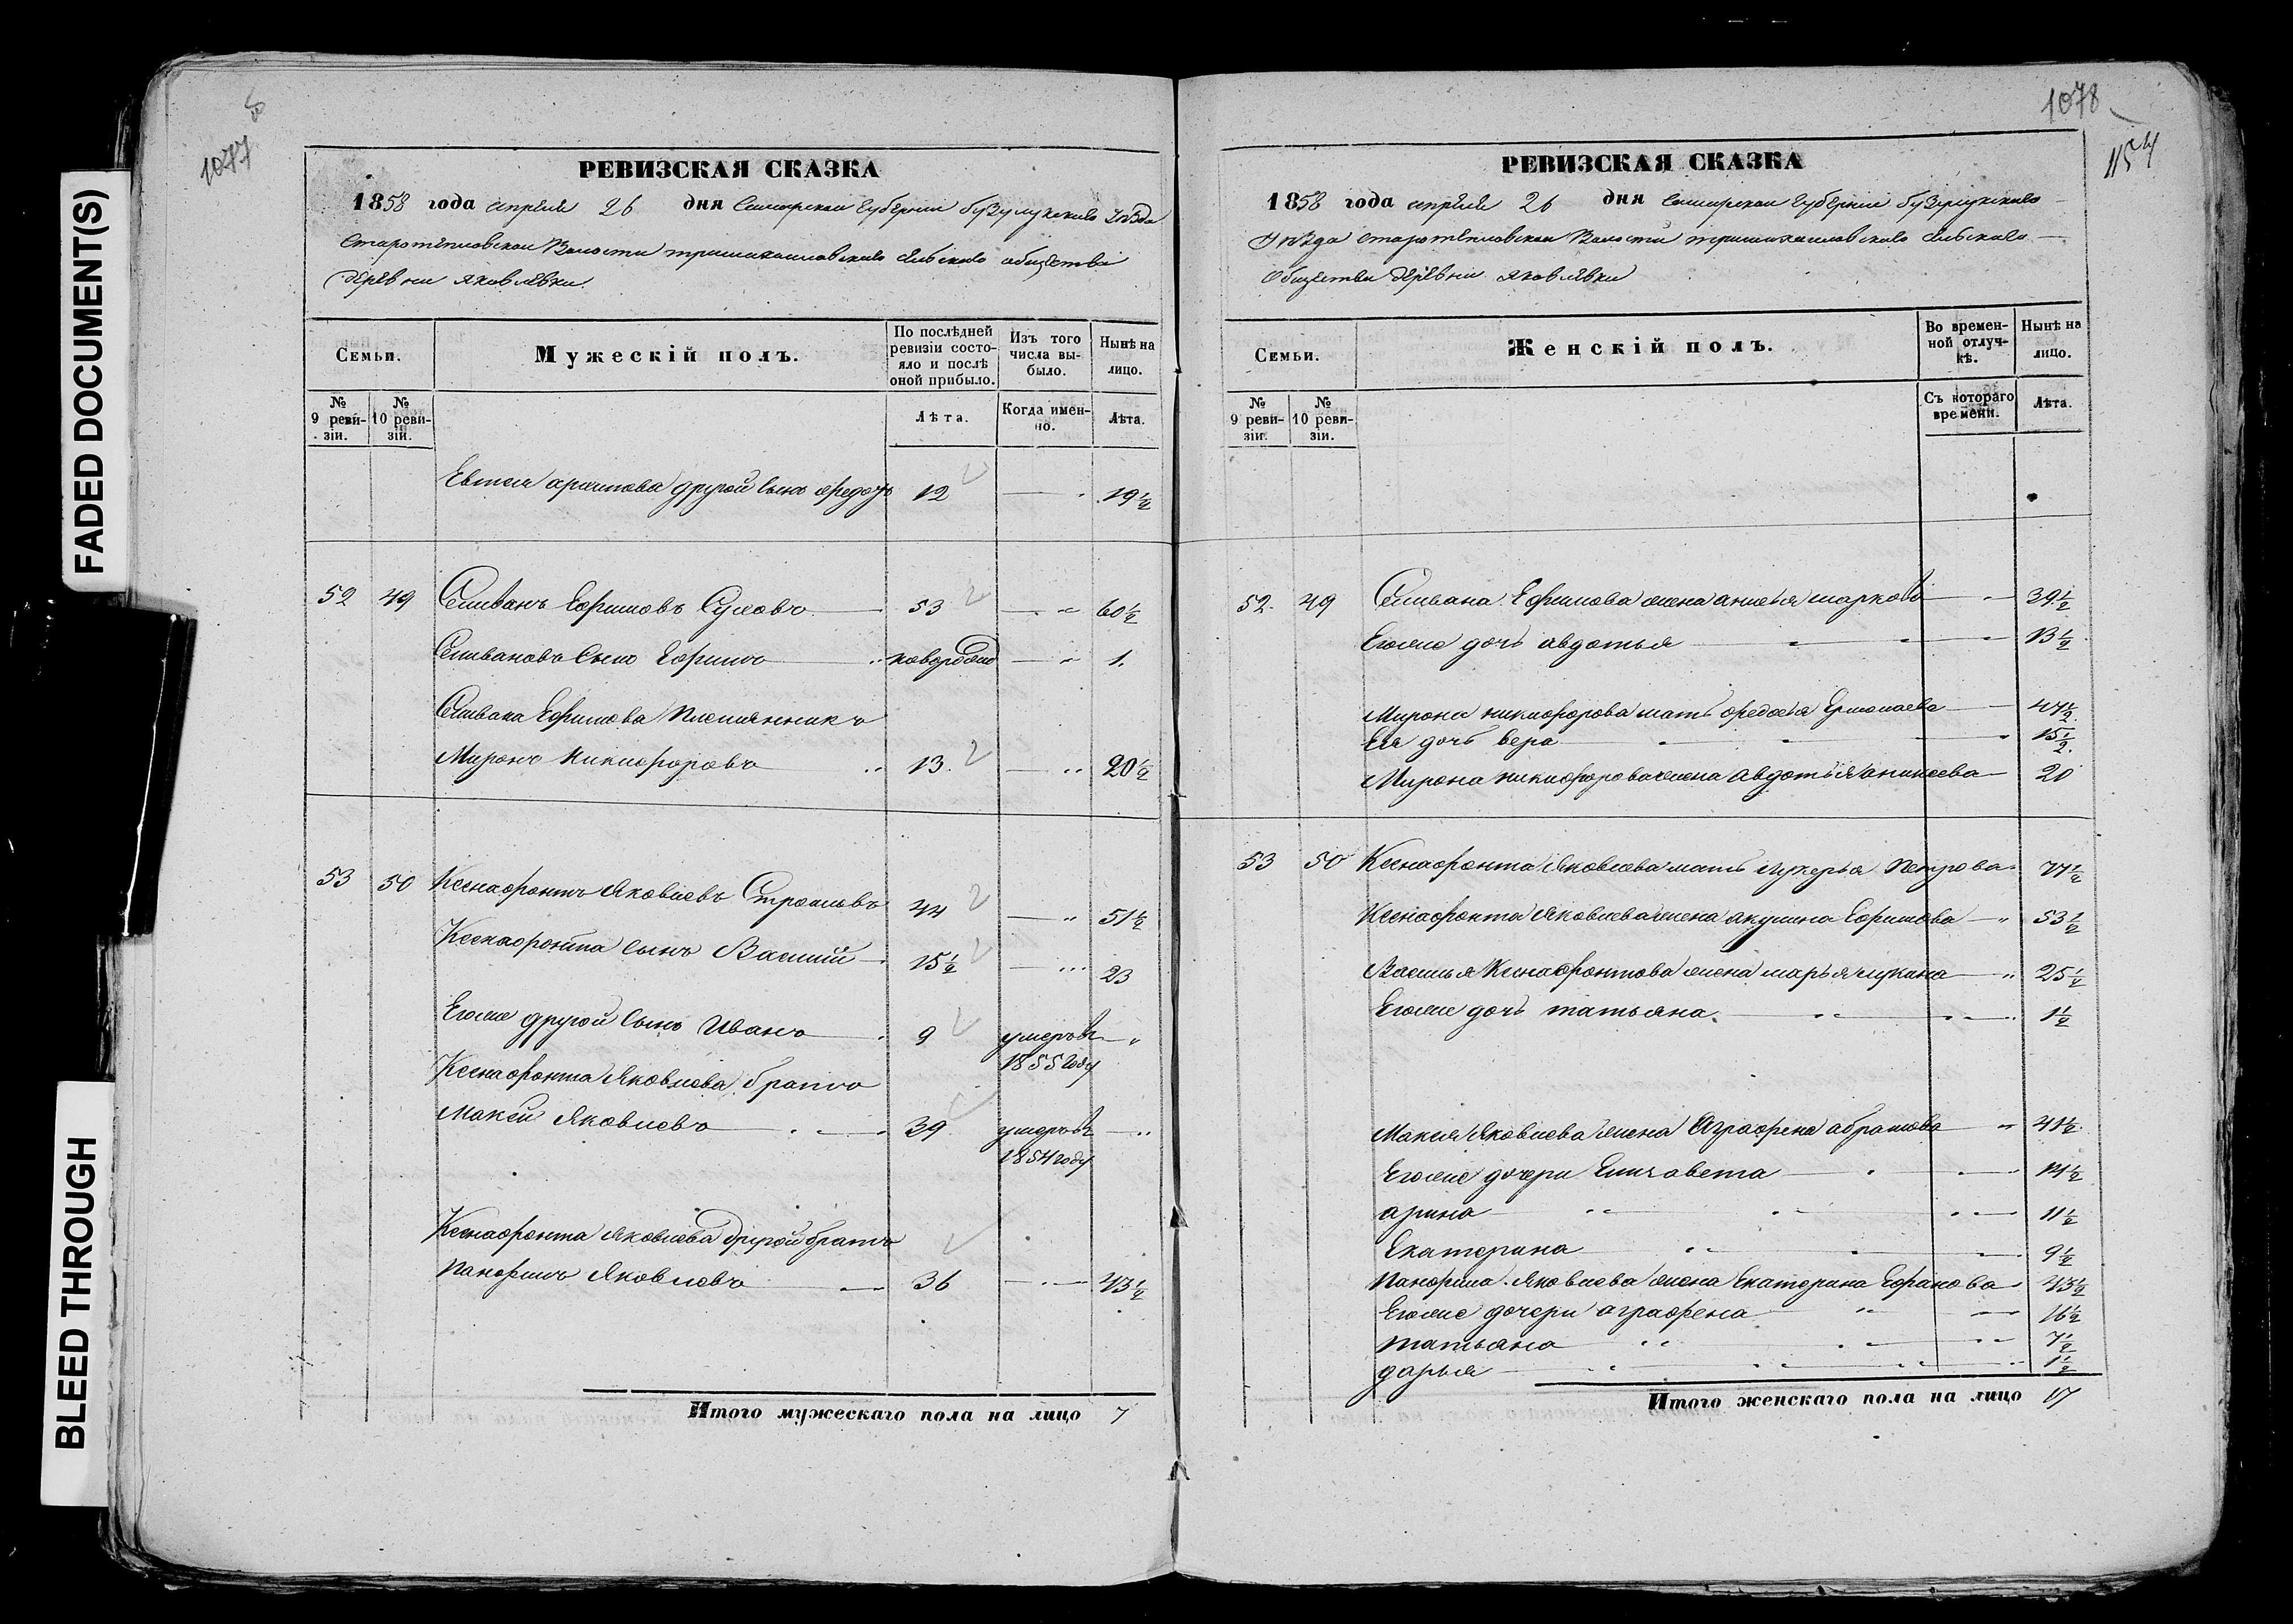 FADED DOCUMENT(S)
BLEED THROUGH
1077
РЕВИЗСКАЯ СКАЗКА
1858 года апреля 26 дня Самарской Губернии бузулукского Уезда
Старотепловской Волости сельского общества
деревни яковлевки.
Семьи.
Мужескій полъ.
По послѣдней ревизіи состояло и послѣ оной прибыло.
Изъ того числа выбыло.
Нынѣ на лицо.
№ 9 ревизіи.
№ 10 ревизіи.
Лѣта.
Когда именно.
Лѣта.
другой сынъ федотъ 12 — 19 ½
52 49 Селиванъ Ефимовъ 53 — 60 ½
Селивановъ Сынъ Ефимъ новорожд — 1.
Селивана Ефимова Племянникъ
Миронъ Никифоровъ 13. — 20 ½
53 50 Ксенафонтъ Яковлевъ 44 — 51 ½
Ксенафонта сынъ Василий 15 ½ — 23
Егоже другой сынъ Иванъ 9 умеръ въ — „
1855 году
Ксенафонта Яковлева братъ
Макей Яковлевъ 39 умеръ въ — „
1854 году
Ксенафонта Яковлева другой братъ
Панфилъ Яковлевъ 36 — 43 ½
Итого мужескаго пола на лицо 7
1078
154
РЕВИЗСКАЯ СКАЗКА
1858 года апреля 26 дня Самарской Губернии бузулукского
Уезда старотепловской Волости сельского
Общества деревни яковлевки
Семьи.
Женскій полъ.
Во временной отлучкѣ.
Нынѣ на лицо.
№ 9 ревизіи.
№ 10 ревизіи.
Съ котораго времени.
Лѣта.
52. 49 Селивана Ефимова жена анисья маркова — 39 ½
Егоже дочь авдотья — 13 ½
Мирона никифорова мать федосья Ермолаева — 47 ½
Ея дочь вера — 15 ½
Мирона никифорова жена авдотья — 20
53 50 Ксенафонта Яковлева мать лукерья Петрова 77 ½
Ксенафонта Яковлева жена акулина Ефимова — 53 ½
Василья Ксенафонтова жена марья лукина — 25 ½
Егоже дочь татьяна — 1 ½
Макея Яковлева жена Аграфена абрамова — 41 ½
Егоже дочери Елизавета — 14 ½
арина — 11 ½
Екатерина — 9 ½
Панфила Яковлева жена Екатерина — 43 ½
Егоже дочери аграфена — 16 ½
татьяна — 7 ½
дарья — 1 ½
Итого женскаго пола на лицо 17